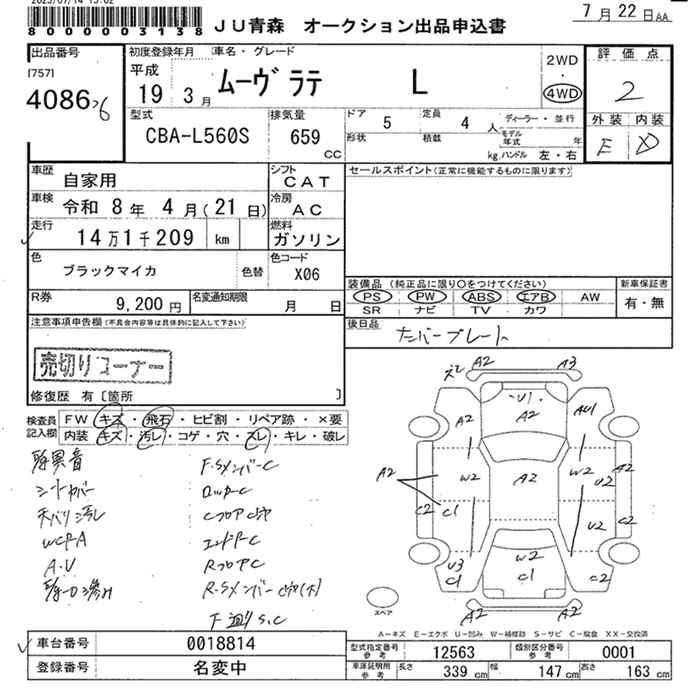 8000003138 JU青森 オークション出品申込書 7月22日AA
出品番号 初度登録年月 車名・グレード 評価点
[757] 平成 19 3月 ムーヴラテ L 2WD・4WD 2
4086 26 外装 内装
型式 排気量 ドア 5 定員 4人 ディーラー・並行 E D
CBA-L560S 659 CC 形状 積載 kg モデル年式 年 ハンドル 左・右
車歴 自家用 シフト CAT セールスポイント(正常に機能するものに限ります)
車検 令和 8年 4月(21日) 冷房 AC
走行 14万1千209 km 燃料 ガソリン
色 ブラックマイカ 色替 色コード X06
装備品(純正品に限り○をつけてください) 新車保証書
PS PW ABS エアB AW 有・無
SR ナビ TV カワ
R券 9,200円 名変通知期限 月 日
注意事項申告欄(不具合内容等は具体的に記入して下さい) 後日品 ナンバープレート
売切りコーナー
修復歴 有〔箇所 〕
検査員記入欄 FW キズ・飛石・ヒビ割・リペア跡・×要
内装 キズ・汚レ・コゲ・穴・スレ・キレ・破レ
F.SメンバーC
シートカバー ロッカーC
天バリ汚レ
WCPA エンドアーC
A.U RフロアC
F S.C
A2 A3
U1
A2 A2 AU1
A2 W2 A2 W2 U2 A2
C2 C1 U2 C2
U3 W2
C1 C1 C2
A2 A2
スペア
A−キズ E−エクボ U−凹み W−補修跡 S−サビ C−腐食 XX−交換済
車台番号 0018814 型式指定番号 参考 12563 類別区分番号 参考 0001
登録番号 名変中 車庫証明用 参考 長さ 339 cm 幅 147 cm 高さ 163 cm